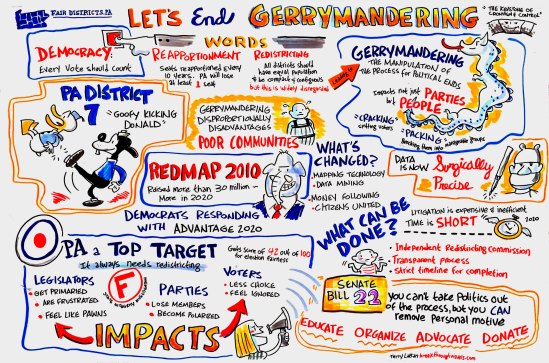 FAIR DISTRICTS PA
LET'S End GERRYMANDERING
"THE KEYSTONE OF
DEMOCRACY CONTROL"
WORDS
DEMOCRACY:
Every Vote should Count
REAPPORTIONMENT
Seats reapportioned every
10 years. PA will lose
at least 1 seat
REDISTRICTING
All districts should
have equal population
& be compact & contiguous
but this is widely disregarded
GERRYMANDERING
THE MANIPULATION OF
THE PROCESS FOR POLITICAL ENDS
Impacts not just PARTIES
but PEOPLE
"CRACKING"
"PACKING"
PA DISTRICT
7
"GOOFY KICKING
DONALD"
GERRYMANDERING
DISPROPORTIONALLY
DISADVANTAGES
POOR COMMUNITIES
REDMAP 2010
Raised more than 30 million -
More in 2020
DEMOCRATS RESPONDING
WITH ADVANTAGE 2020
WHAT'S
CHANGED?
- MAPPING TECHNOLOGY
- DATA MINING
- MONEY FOLLOWING
- CITIZENS UNITED
DATA
IS NOW Surgically
Precise
LITIGATION IS EXPENSIVE & INEFFICIENT
TIME IS SHORT
2020
PA a TOP TARGET
It always needs redistricting
Gets score of 42 out of 100
for election fairness
LEGISLATORS
• GET PRIMARIED
• ARE FRUSTRATED
• FEEL LIKE PAWNS
F
PARTIES
• LOSE MEMBERS
• BECOME POLARIZED
VOTERS
• LESS CHOICE
• FEEL IGNORED
IMPACTS
WHAT CAN BE
DONE?
• Independent Redistricting Commission
• Transparent process
• Strict timeline for completion
SENATE
BILL 22
you can't take Politics out
of the process, but you CAN
remove personal motive
EDUCATE ORGANIZE ADVOCATE DONATE